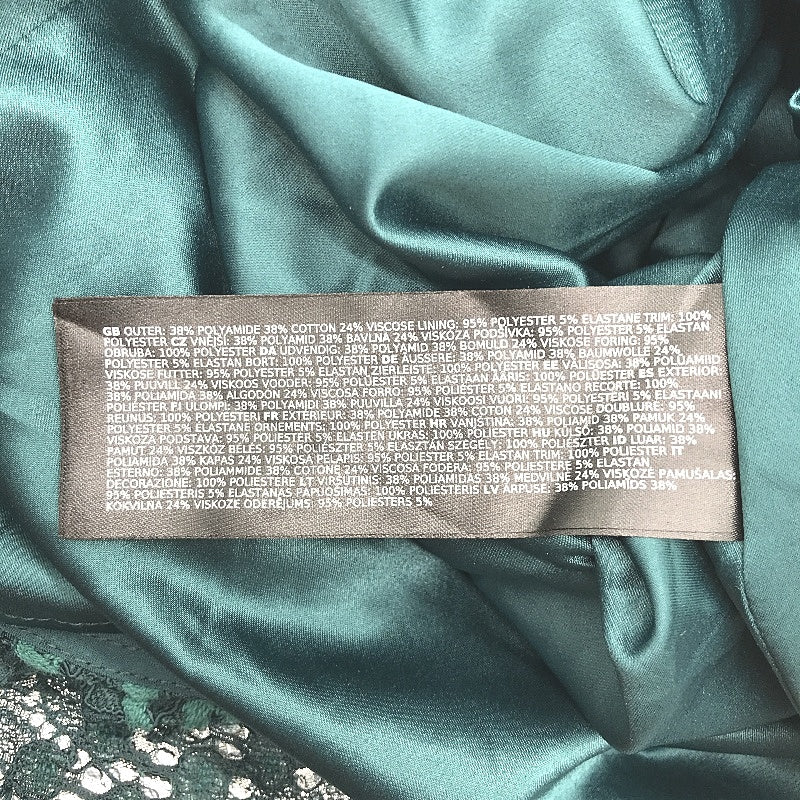 GB OUTER: 38% POLYAMIDE 38% COTTON 24% VISCOSE LINING: 95% POLYESTER 5% ELASTANE TRIM: 100%
POLYESTER CZ VNĚJŠÍ: 38% POLYAMID 38% BAVLNA 24% VISKÓZA PODŠÍVKA: 95% POLYESTER 5% ELASTAN
OBRUBA: 100% POLYESTER DA UDVENDIG: 38% POLYAMID 38% BOMULD 24% VISKOSE FORING: 95%
POLYESTER 5% ELASTAN BORT: 100% POLYESTER DE ÄUSSERE: 38% POLYAMID 38% BAUMWOLLE 24%
VISKOSE FUTTER: 95% POLYESTER 5% ELASTAN ZIERLEISTE: 100% POLYESTER EE VÄLISOSA: 38% POLÜAMIID
38% PUUVILL 24% VISKOOS VODDER: 95% POLÜESTER 5% ELASTAAN ÄÄRIS: 100% POLÜESTER ES EXTERIOR:
38% POLIAMIDA 38% ALGODÓN 24% VISCOSA FORRO: 95% POLIÉSTER 5% ELASTANO RECORTE: 100%
POLIÉSTER FI ULOMPI: 38% POLYAMIDI 38% PUUVILLA 24% VISKOOSI VUORI: 95% POLYESTERI 5% ELASTAANI
REUNUS: 100% POLYESTERI FR EXTÉRIEUR: 38% POLYAMIDE 38% COTON 24% VISCOSE DOUBLURE: 95%
POLYESTER 5% ÉLASTHANE ORNEMENTS: 100% POLYESTER HR VANJŠTINA: 38% POLIAMID 38% PAMUK 24%
VISKOZA PODSTAVA: 95% POLIESTER 5% ELASTEN UKRAS: 100% POLIESTER HU KÜLSŐ: 38% POLIAMID 38%
PAMUT 24% VISZKÓZ BÉLÉS: 95% POLIÉSZTER 5% ELASZTÁN SZEGÉLY: 100% POLIÉSZTER ID LUAR: 38%
POLIAMIDA 38% KAPAS 24% VISKOSA PELAPIS: 95% POLIESTER 5% ELASTAN TRIM: 100% POLIESTER IT
ESTERNO: 38% POLIAMMIDE 38% COTONE 24% VISCOSA FODERA: 95% POLIESTERE 5% ELASTAN
DECORAZIONE: 100% POLIESTERE LT VIRŠUTINIS: 38% POLIAMIDAS 38% MEDVILNĖ 24% VISKOZĖ PAMUŠALAS:
95% POLIESTERIS 5% ELASTANAS PAPUOŠIMAS: 100% POLIESTERIS LV ĀRPUSE: 38% POLIAMĪDS 38%
KOKVILNA 24% VISKOZE ODERĒJUMS: 95% POLIESTERS 5%